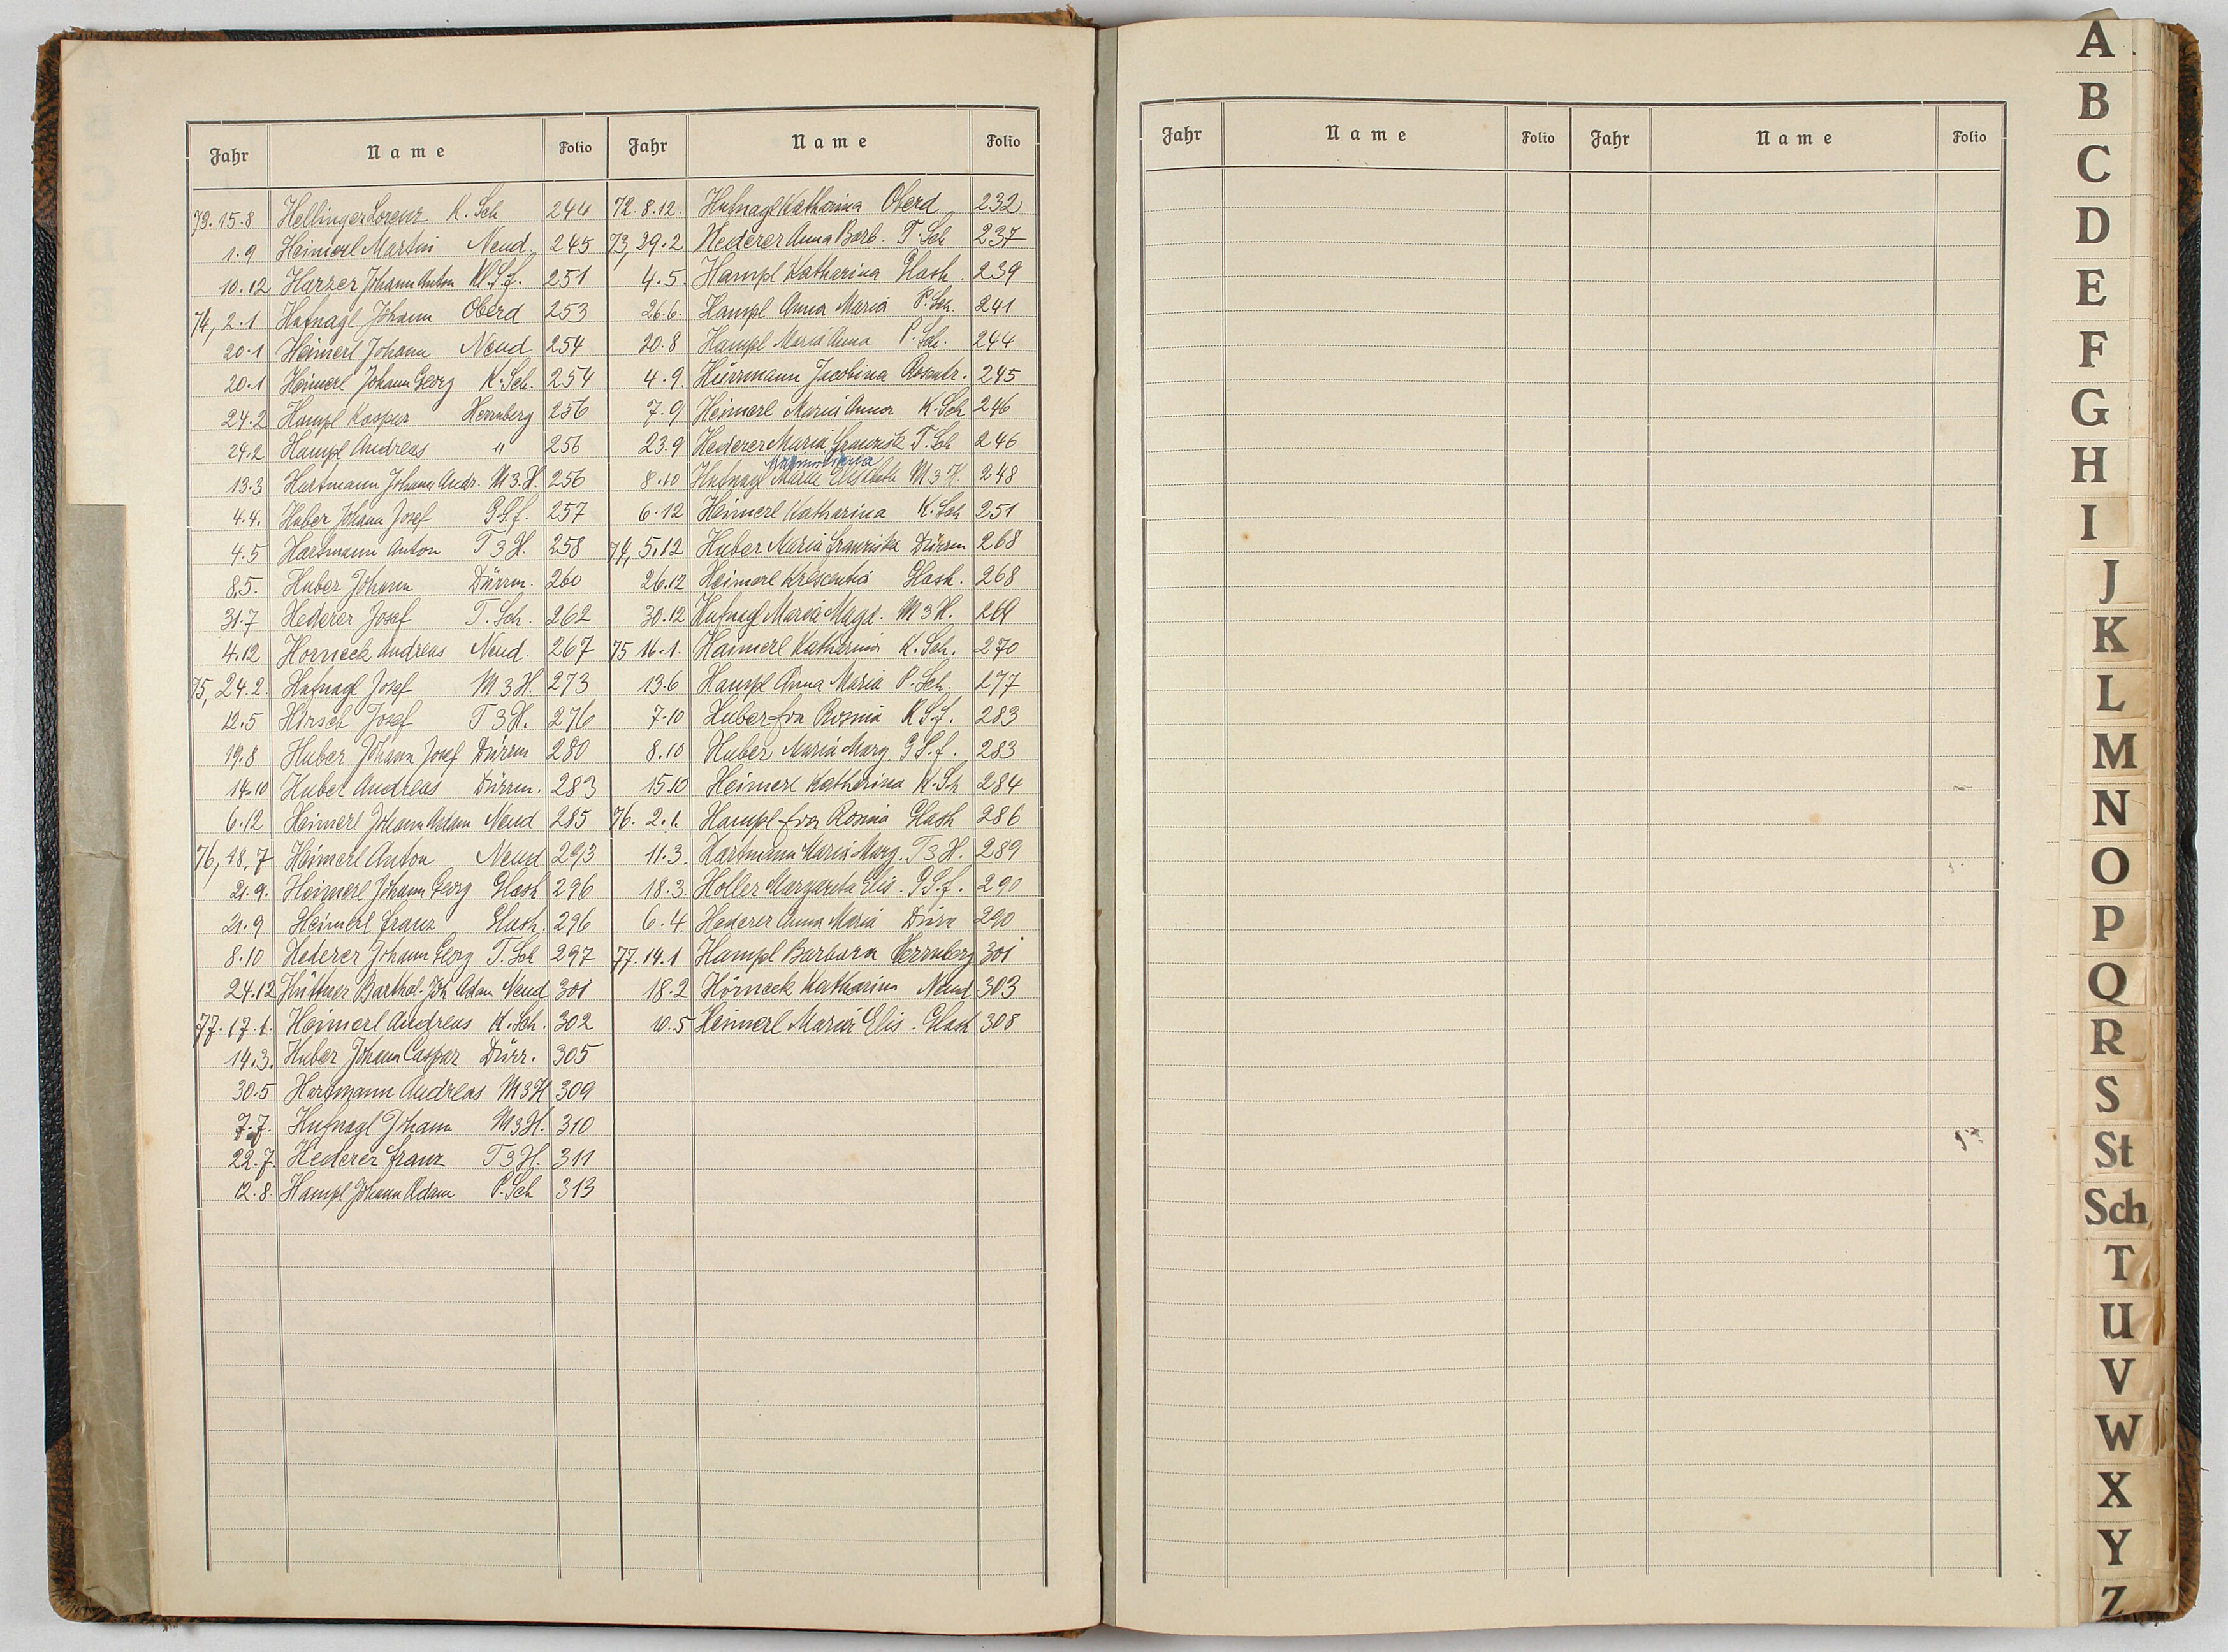 Jahr Name Folio Jahr Name Folio
73. 15.8 Hellinger Lorenz K. Sch 244
1.9 Heimerl Martin Neud. 245
10.12 Harzer Johann Anton 251
74, 2.1 Hufnagl Johann Oberd 253
20.1 Heimerl Johann Neud 254
20.1 Heimerl Johann Georg K. Sch. 254
24.2 Hampl Kaspar Herrnberg 256
24.2 Hampl Andreas " 256
13.3 Hartmann Johann Andr. M 3 H. 256
4.4. Huber Johann Josef 257
4.5 Hartmann Anton T 3 H. 258
8.5. Huber Johann Dürrm. 260
31.7 Hederer Josef T. Sch. 262
4.12 Horneck Andreas Neud. 267
75, 24.2. Hufnagl Josef M 3 H. 273
12.5 Hirsch Josef T 3 H. 276
19.8 Huber Johann Josef Dürrm 280
14.10 Huber Andreas Dürrm. 283
6.12 Heimerl Johann Adam Neud 285
76, 18.7 Heimerl Anton Neud 293
21.9. Heimerl Johann Georg Glash 296
21.9 Heimerl Franz Glash. 296
8.10 Hederer Johann Georg T. Sch 297
24.12 Hüttner Barthol. Joh Adam Neud 301
77. 17.1. Heimerl Andreas K. Sch. 302
14.3. Huber Johann Caspar Dürr. 305
30.5 Hartmann Andreas M 3 H 309
7.7. Hufnagl Johann M 3 H. 310
22.7. Hederer Franz T 3 H. 311
12.8. Hampl Johann Adam P. Sch 313
72. 8.12. Hufnagl Katharina Oberd 232
73, 29.2 Hederer Anna Barb. T. Sch 237
4.5. Hampl Katharina Glash. 239
26.6. Hampl Anna Maria P. Sch. 241
20.8 Hampl Maria Anna P. Sch. 244
4.9 Hürrmann Jacobina 245
7.9 Heimerl Maria Anna K. Sch 246
23.9 Hederer Maria Franzisk T. Sch 246
Maximiliana
8.10 Hufnagl Maria Elisabeth M 3 H. 248
6.12 Heimerl Katharina K. Sch 251
74, 5.12 Huber Maria Franziska Dürrm 268
26.12 Heimerl Krescentia Glash. 268
30.12 Hufnagl Maria Magd. M 3 H. 269
75 16.1. Haimerl Katharina K. Sch. 270
13.6 Hampl Anna Maria P. Sch. 277
7.10 Huber Eva Rosina 283
8.10 Huber Maria Marg. 283
15.10 Heimerl Katharina K. Sch 284
76. 2.1. Hampl Eva Rosina Glash 286
11.3. Hartmann Maria Marg. T 3 H. 289
18.3. Holler Margareta Elis. 290
6.4 Hederer Anna Maria Dürr 290
77. 14.1 Hampl Barbara Herrnberg 301
18.2 Hörneck Katharina Neud 303
10.5 Heimerl Maria Elis. Glash 308
Jahr Name Folio Jahr Name Folio
A
B
C
D
E
F
G
H
I
J
K
L
M
N
O
P
Q
R
S
St
Sch
T
U
V
W
X
Y
Z